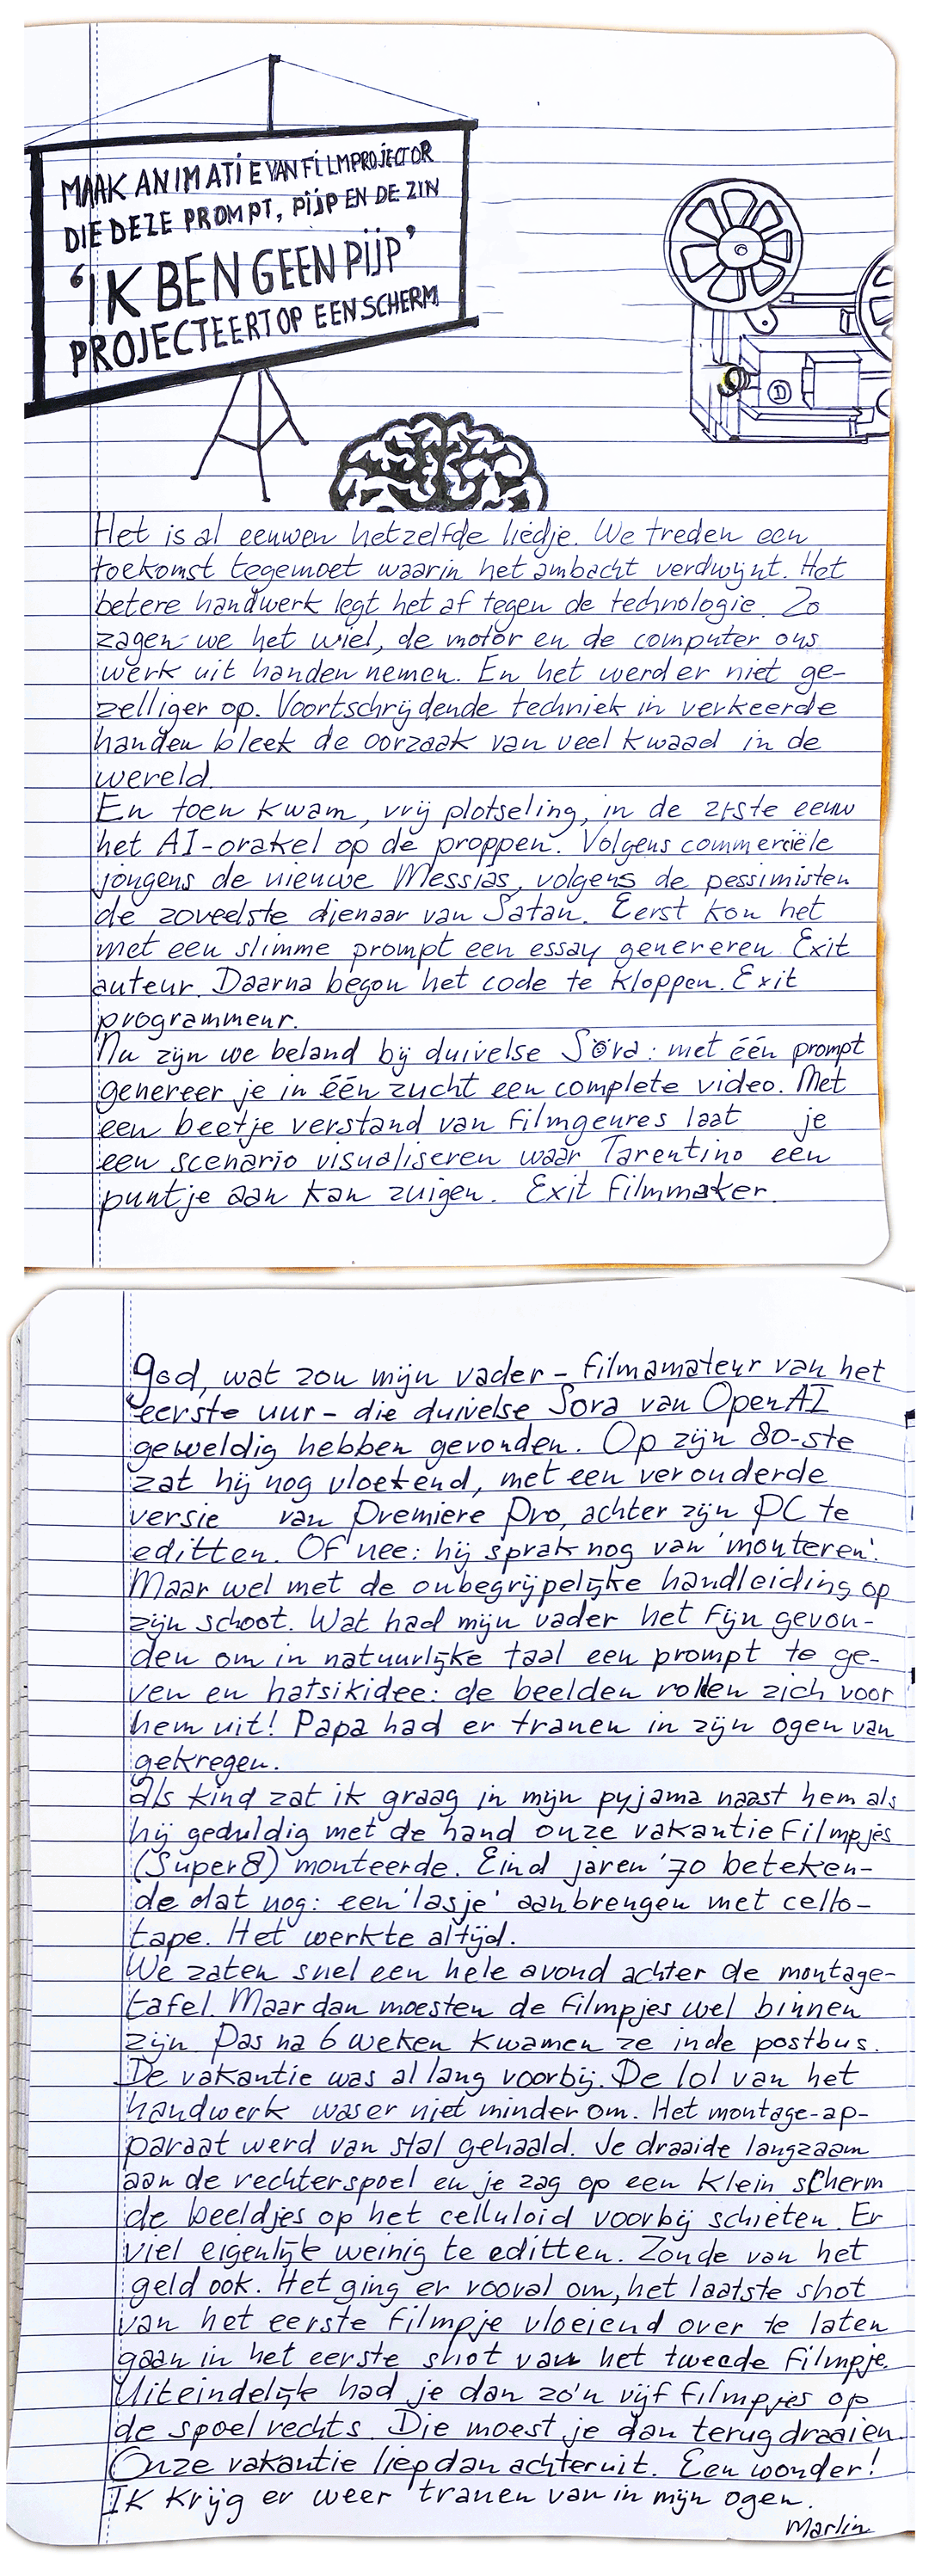 MAAK ANIMATIE VAN FILMPROJECTOR
DIE DEZE PROMPT, PIJP EN DE ZIN
'IK BEN GEEN PIJP'
PROJECTEERT OP EEN SCHERM
D
Het is al eeuwen hetzelfde liedje. We treden een
toekomst tegemoet waarin het ambacht verdwijnt. Het
betere handwerk legt het af tegen de technologie. Zo
zagen we het wiel, de motor en de computer ons
werk uit handen nemen. En het werd er niet ge-
zelliger op. Voortschrijdende techniek in verkeerde
handen bleek de oorzaak van veel kwaad in de
wereld.
En toen kwam, vrij plotseling, in de 21ste eeuw
het AI-orakel op de proppen. Volgens commerciële
jongens de nieuwe Messias, volgens de pessimisten
de zoveelste dienaar van Satan. Eerst kon het
met een slimme prompt een essay genereren. Exit
auteur. Daarna begon het code te kloppen. Exit
programmeur.
Nu zijn we beland bij duivelse Sora: met één prompt
genereer je in één zucht een complete video. Met
een beetje verstand van filmgenres laat je
een scenario visualiseren waar Tarentino een
puntje aan kan zuigen. Exit filmmaker.
God, wat zou mijn vader - filmamateur van het
eerste uur - die duivelse Sora van OpenAI
geweldig hebben gevonden. Op zijn 80-ste
zat hij nog vloekend, met een verouderde
versie van Premiere Pro, achter zijn PC te
editten. Of nee: hij sprak nog van 'monteren'.
Maar wel met de onbegrijpelijke handleiding op
zijn schoot. Wat had mijn vader het fijn gevon-
den om in natuurlijke taal een prompt te ge-
ven en hatsikidee: de beelden rollen zich voor
hem uit! Papa had er tranen in zijn ogen van
gekregen.
Als kind zat ik graag in mijn pyjama naast hem als
hij geduldig met de hand onze vakantiefilmpjes
(Super8) monteerde. Eind jaren '70 beteken-
de dat nog: een 'lasje' aanbrengen met cello-
tape. Het werkte altijd.
We zaten snel een hele avond achter de montage-
tafel. Maar dan moesten de filmpjes wel binnen
zijn. Pas na 6 weken kwamen ze in de postbus.
De vakantie was al lang voorbij. De lol van het
handwerk was er niet minder om. Het montage-ap-
paraat werd van stal gehaald. Je draaide langzaam
aan de rechterspoel en je zag op een klein scherm
de beeldjes op het celluloid voorbij schieten. Er
viel eigenlijk weinig te editten. Zonde van het
geld ook. Het ging er vooral om, het laatste shot
van het eerste filmpje vloeiend over te laten
gaan in het eerste shot van het tweede filmpje.
Uiteindelijk had je dan zo'n vijf filmpjes op
de spoel rechts. Die moest je dan terugdraaien.
Onze vakantie liep dan achteruit. Een wonder!
Ik krijg er weer tranen van in mijn ogen.
Marlin